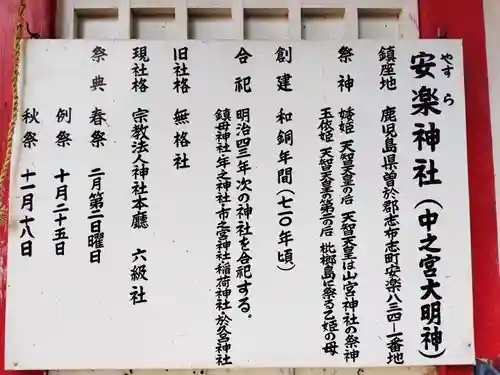 安楽神社（中之宮大明神）
やすら
鎮座地　鹿児島県曽於郡志布志町安楽八三四ー一番地
祭神　姥姫　天智天皇の后　天智天皇は山宮神社の祭神
玉依姫　天智天皇の第二の后　枇榔島に祭る乙姫の母
創建　和銅年間（七一〇年頃）
合祀　明治四三年次の神社を合祀する。
鎮母神社・年之神社・市之宮神社・稲荷神社・於呂神社
旧社格　無格社
現社格　宗教法人神社本廳　六級社
祭典　春祭　二月第二日曜日
例祭　十月二十五日
秋祭　十一月十八日